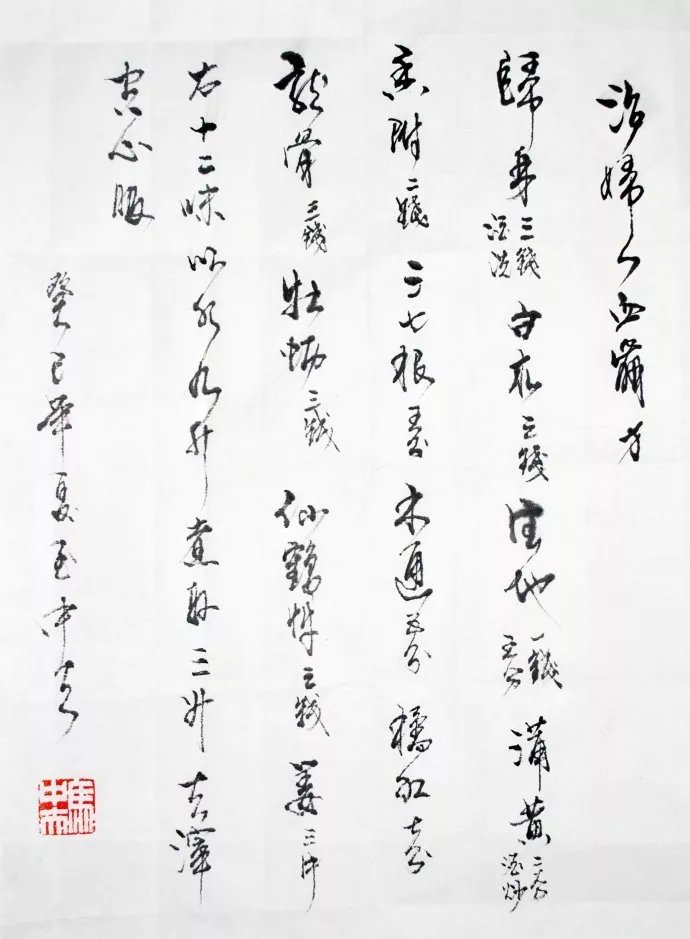 治婦人血崩方
歸身三錢酒洗 白朮三錢 生地一錢五分 蒲黃二分酒炒
香附二錢 三七根五分 木通五分 橘紅七分
龍骨三錢 牡蛎三錢 仙鶴草三錢 姜三片
右十二味以水九升煮取三升去滓
空心服
癸巳年夏至中